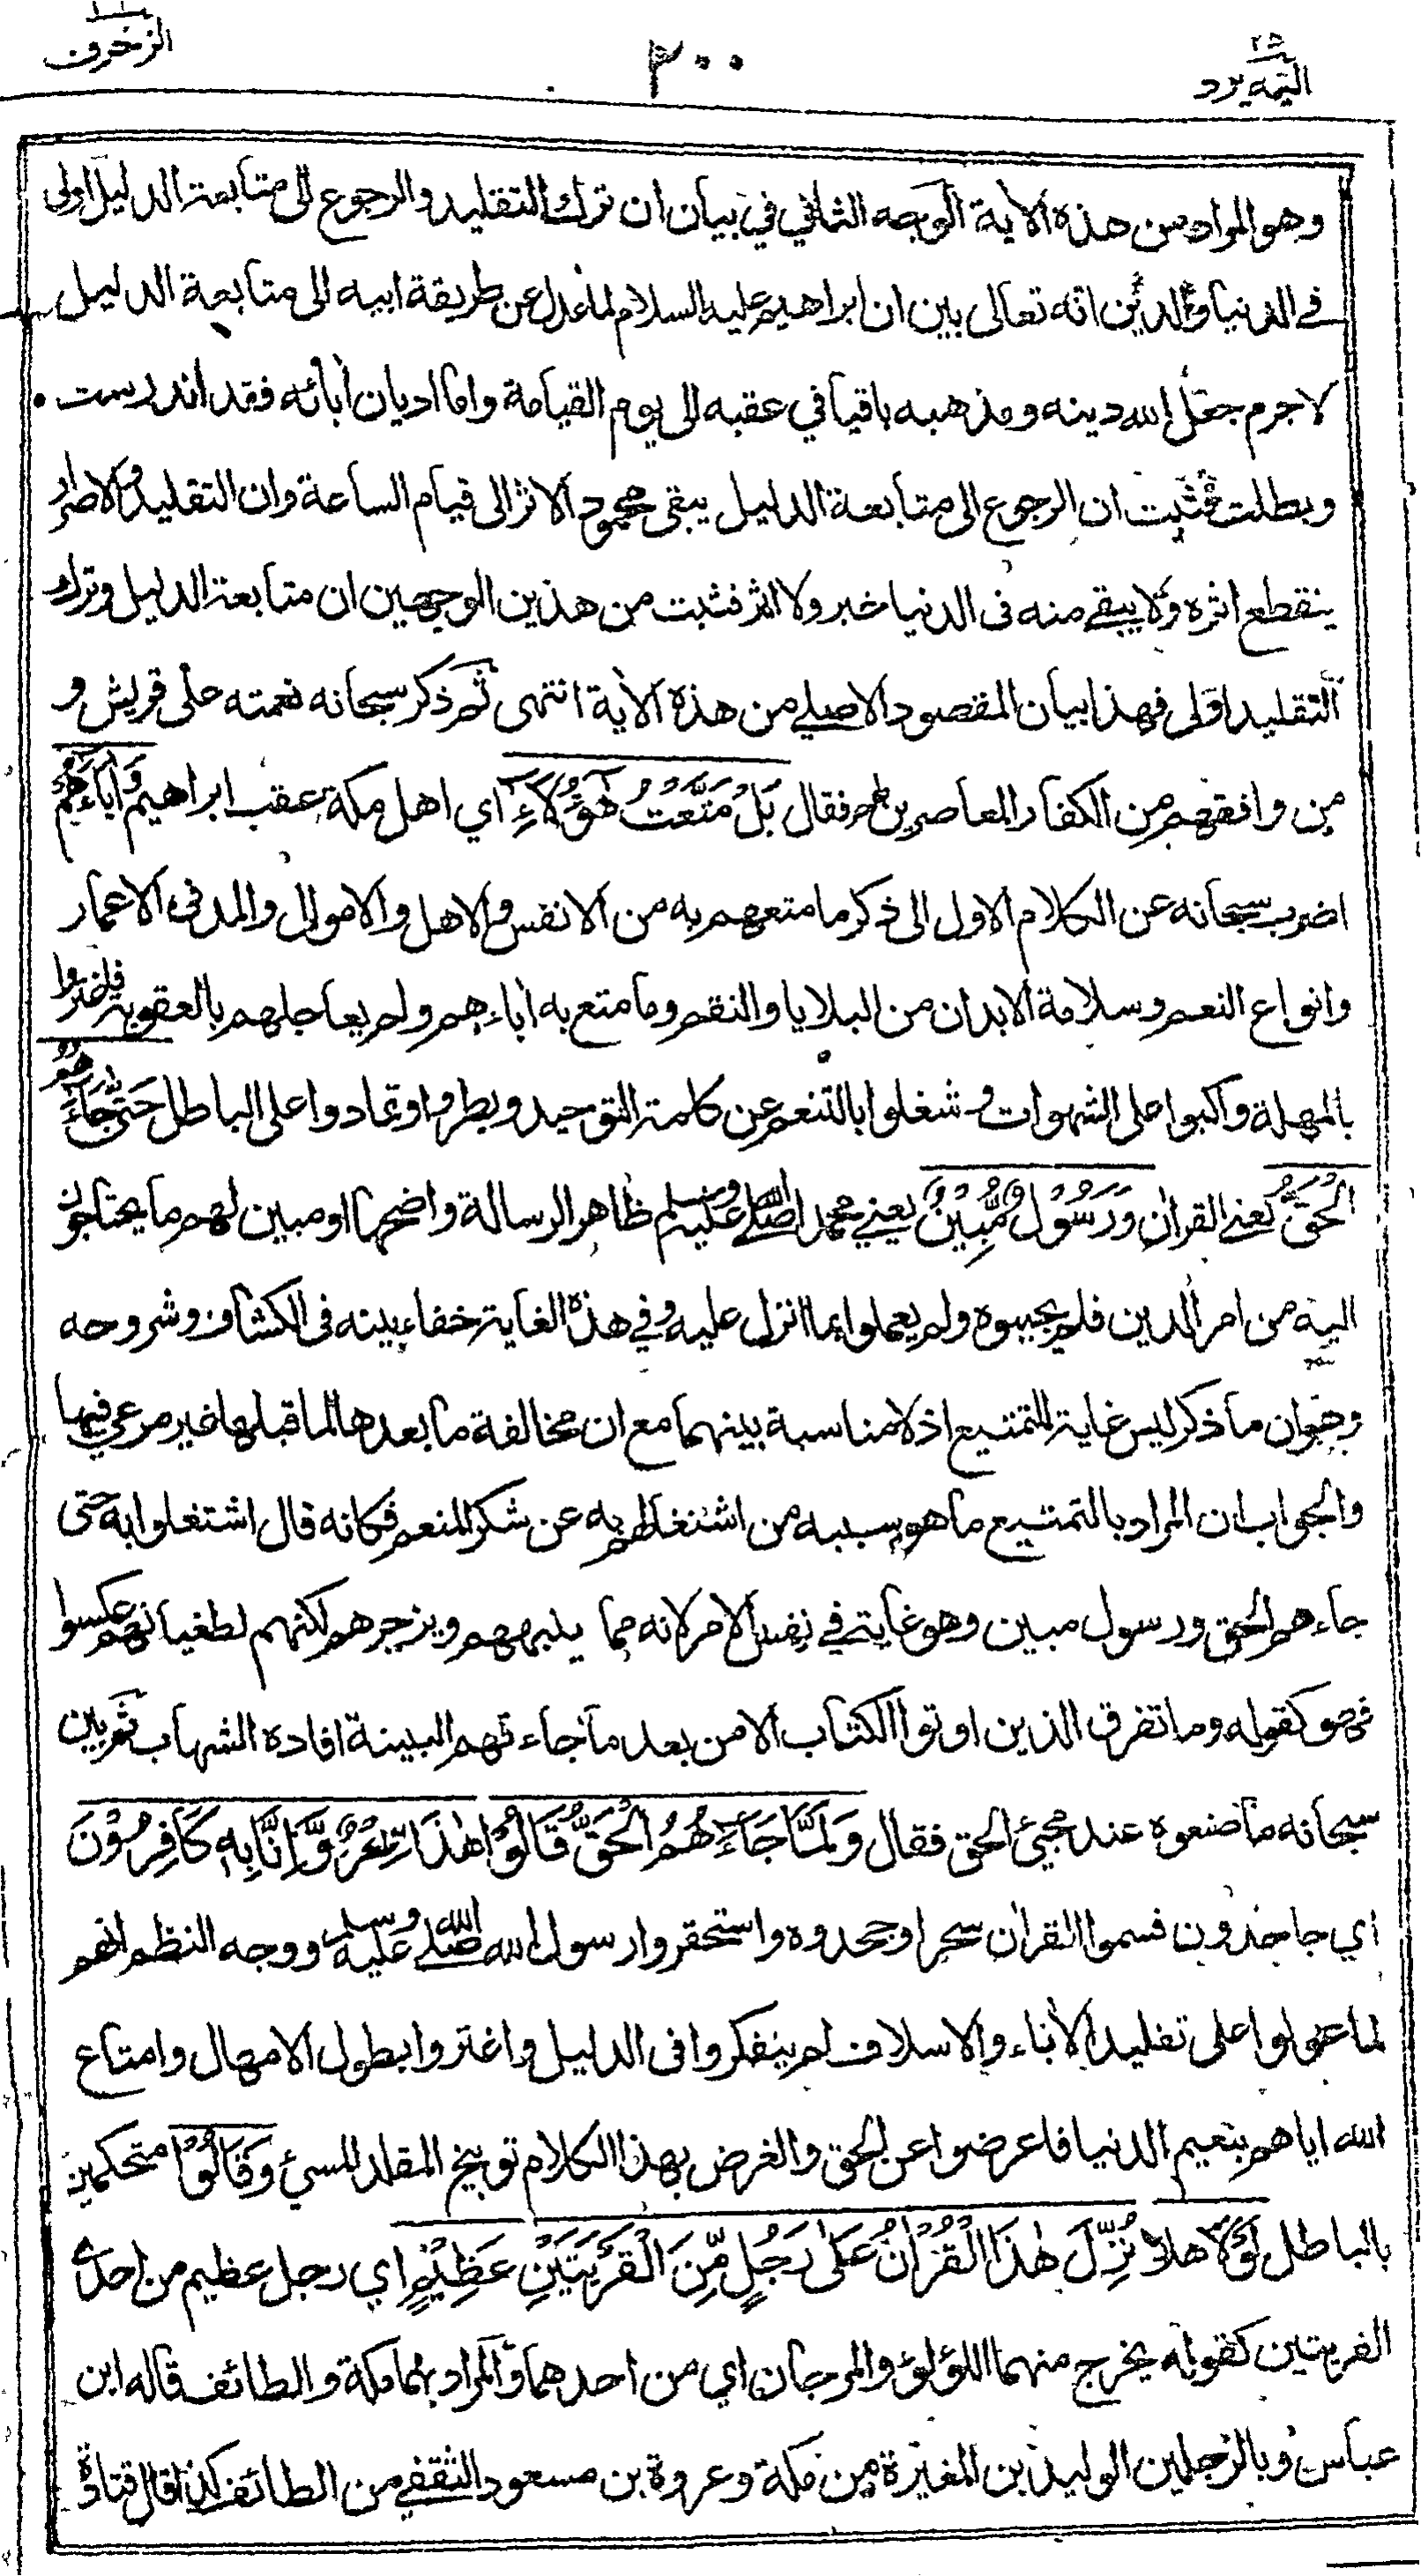 اليه يرد ٢٥
٣٠٠
الزخرف
وهو المراد من هذه الأية الوجه الثاني في بيان ان ترك التقليد والرجوع الى متابعة الدليل اولى
في الدنيا والدين انه تعالى بين ان ابراهيم عليه السلام لما عدل عن طريقة ابيه الى متابعة الدليل
لا جرم جعل الله دينه ومذهبه باقيا في عقبه الى يوم القيامة واما اديان أبائه فقد اندرست
وبطلت فثبت ان الرجوع الى متابعة الدليل يبقى محمود الاثر الى قيام الساعة وان التقليد والاصرار
ينقطع اثره ولا يبقى منه فى الدنيا خبر ولا اثر فثبت من هذين الوجهين ان متابعة الدليل وترك
التقليد اولى فهذا بيان المقصود الاصلي من هذه الأية انتهى ثم ذكر سبحانه نعمته على قريش و
من وافقهم من الكفار المعاصرين لهم فقال بَلْ مَتَّعْتُ هٰؤُلَاءِ اي اهل مكة عقب ابراهيم وَاٰبَاءَهُمْ
اضرب سبحانه عن الكلام الاول الى ذكر ما متعهم به من الانفس والاهل والاموال والمد فى الاعمار
وانواع النعم وسلامة الابدان من البلايا والنقم وما متع به أباءهم ولم يعاجلهم بالعقوبة فاغتروا
بالمهلة واكبوا على الشهوات وشغلوا بالتنعم عن كلمة التوحيد وبطروا وتمادوا على الباطل حَتّٰى جَاءَهُمُ
الْحَقُّ يعني القران وَرَسُوْلٌ مُّبِيْنٌ يعني محمدا صلى الله عليه وسلم ظاهر الرسالة واضحها او مبين لهم ما يحتاجون
اليه من امر الدين فلم يجيبوه ولم يعملوا بما انزل عليه وفي هذه الغاية خفاء بينه فى الكشاف وشروحه
وهو ان ما ذكر ليس غاية للتمتيع اذ لا مناسبة بينهما مع ان مخالفة ما بعدها لما قبلها غير مرعي فيها
والجواب ان المراد بالتمتيع ما هو سببه من اشتغالهم به عن شكر المنعم فكانه قال اشتغلوا به حتى
جاءهم الحق ورسول مبين وهو غايته في نفس الامر لانه مما ينبههم ويزجرهم لكنهم لطغيانهم عكسوا
فهو كقوله وما تفرق الذين اوتوا الكتاب الا من بعد ما جاءتهم البينة افاده الشهاب ثم بين
سبحانه ما صنعوه عند مجيئ الحق فقال وَلَمَّا جَاءَهُمُ الْحَقُّ قَالُوْا هٰذَا سِحْرٌ وَّاِنَّا بِهٖ كَافِرُوْنَ
اي جاحدون فسموا القران سحرا وجحدوه واستحقروا رسول الله صلى الله عليه وسلم ووجه النظم انهم
لما عولوا على تقليد الأباء والاسلاف لم يتفكروا فى الدليل واغتروا بطول الامهال وامتاع
الله اياهم بنعيم الدنيا فاعرضوا عن الحق والغرض بهذا الكلام توبيخ المقلد المسيئ وَقَالُوْا متحكمين
بالباطل لَوْلَا هلا نُزِّلَ هٰذَا الْقُرْاٰنُ عَلٰى رَجُلٍ مِّنَ الْقَرْيَتَيْنِ عَظِيْمٍ اي رجل عظيم من احدى
القريتين كقوله يخرج منهما اللؤلؤ والمرجان اي من احدهما والمراد بهما مكة والطائف قاله ابن
عباس وبالرجلين الوليد بن المغيرة من مكة وعروة بن مسعود الثقفي من الطائف كذا قال قتادة